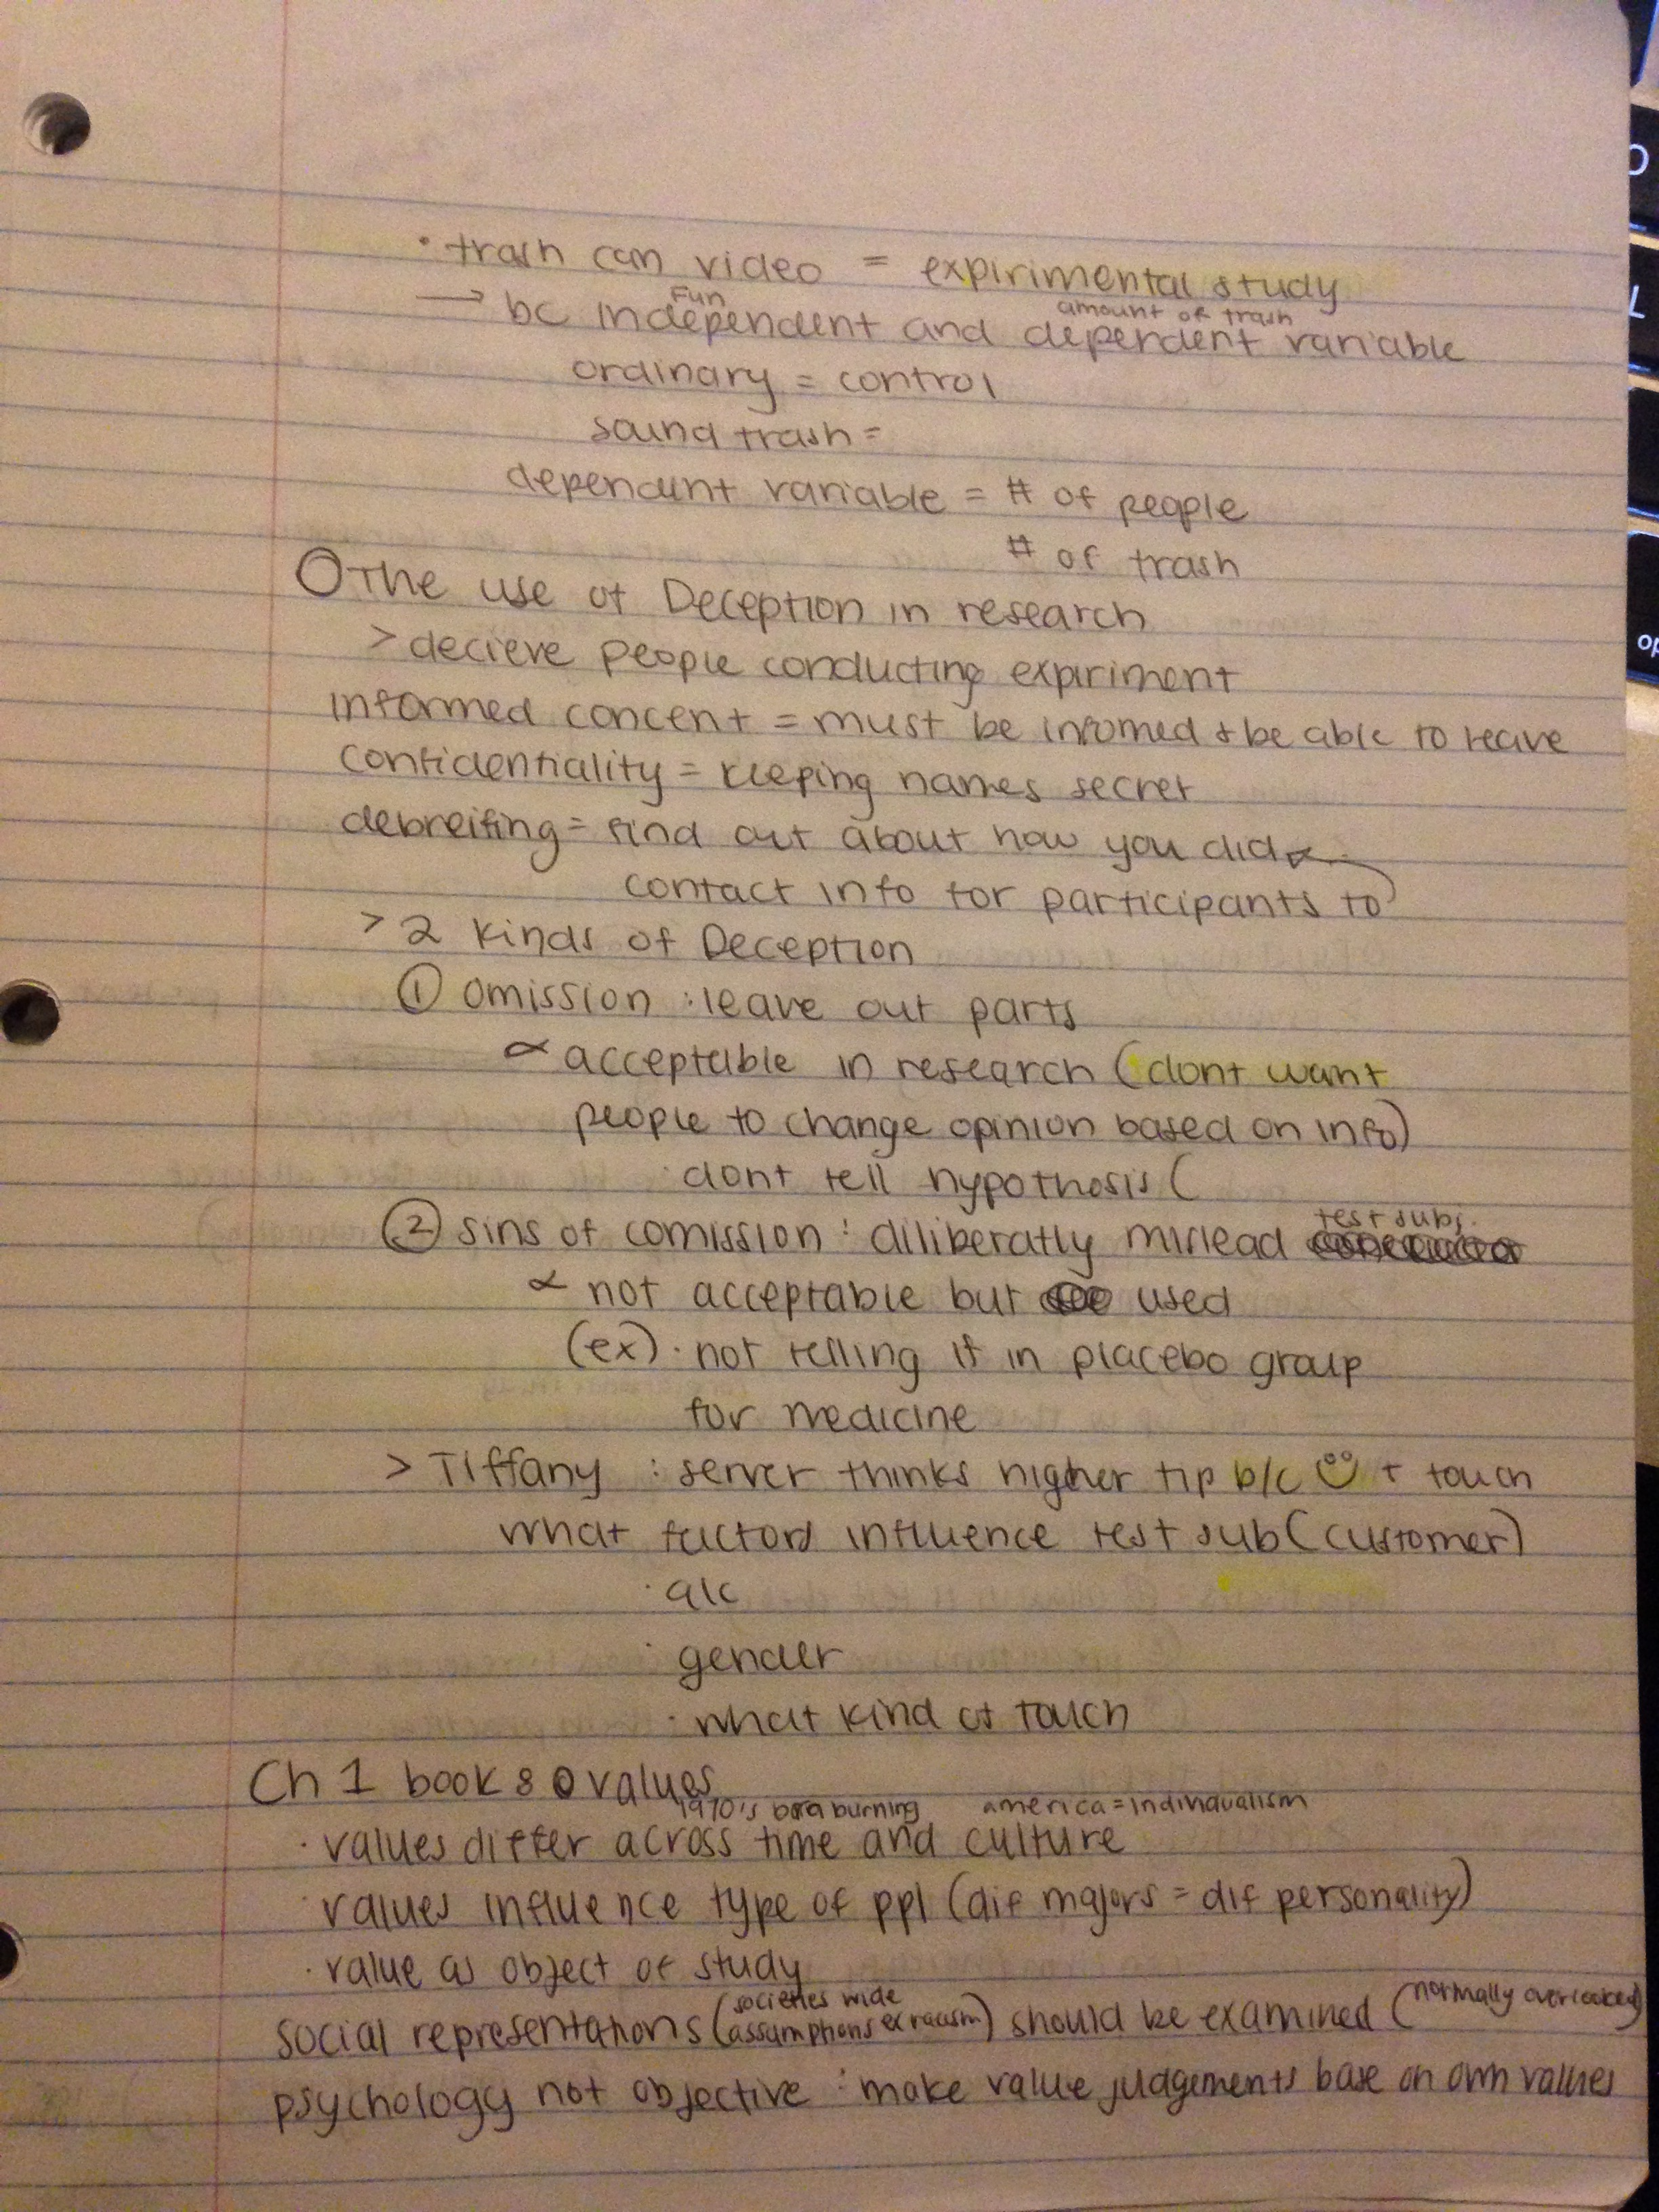 · trash can video = expirimental study
Fun amount of trash
→ bc independent and dependent variable
ordinary = control
sound trash =
dependent variable = # of people
# of trash
O The use of Deception in research
> decieve people conducting expiriment
informed concent = must be infomed + be able to leave
confidentiality = keeping names secret
debreifing = find out about how you did
contact info for participants to
> 2 kinds of Deception
① omission : leave out parts
∝ acceptable in research (dont want
people to change opinion based on info)
· dont tell hypothosis (
test subj.
② sins of comission : diliberatly mislead
∝ not acceptable but used
(ex) · not telling if in placebo group
for medicine
> Tiffany : server thinks higher tip b/c ☺ + touch
what factors influence test sub (customer)
· alc
· gender
· what kind of touch
Ch 1 book 8 values
1970's bra burning america = individualism
· values differ across time and culture
· values influence type of ppl (dif majors = dif personality)
· value as object of study
societies wide (normally overlooked)
social representations (assumptions ex racism) should be examined
psychology not objective : make value judgements base on own values
O
L
op